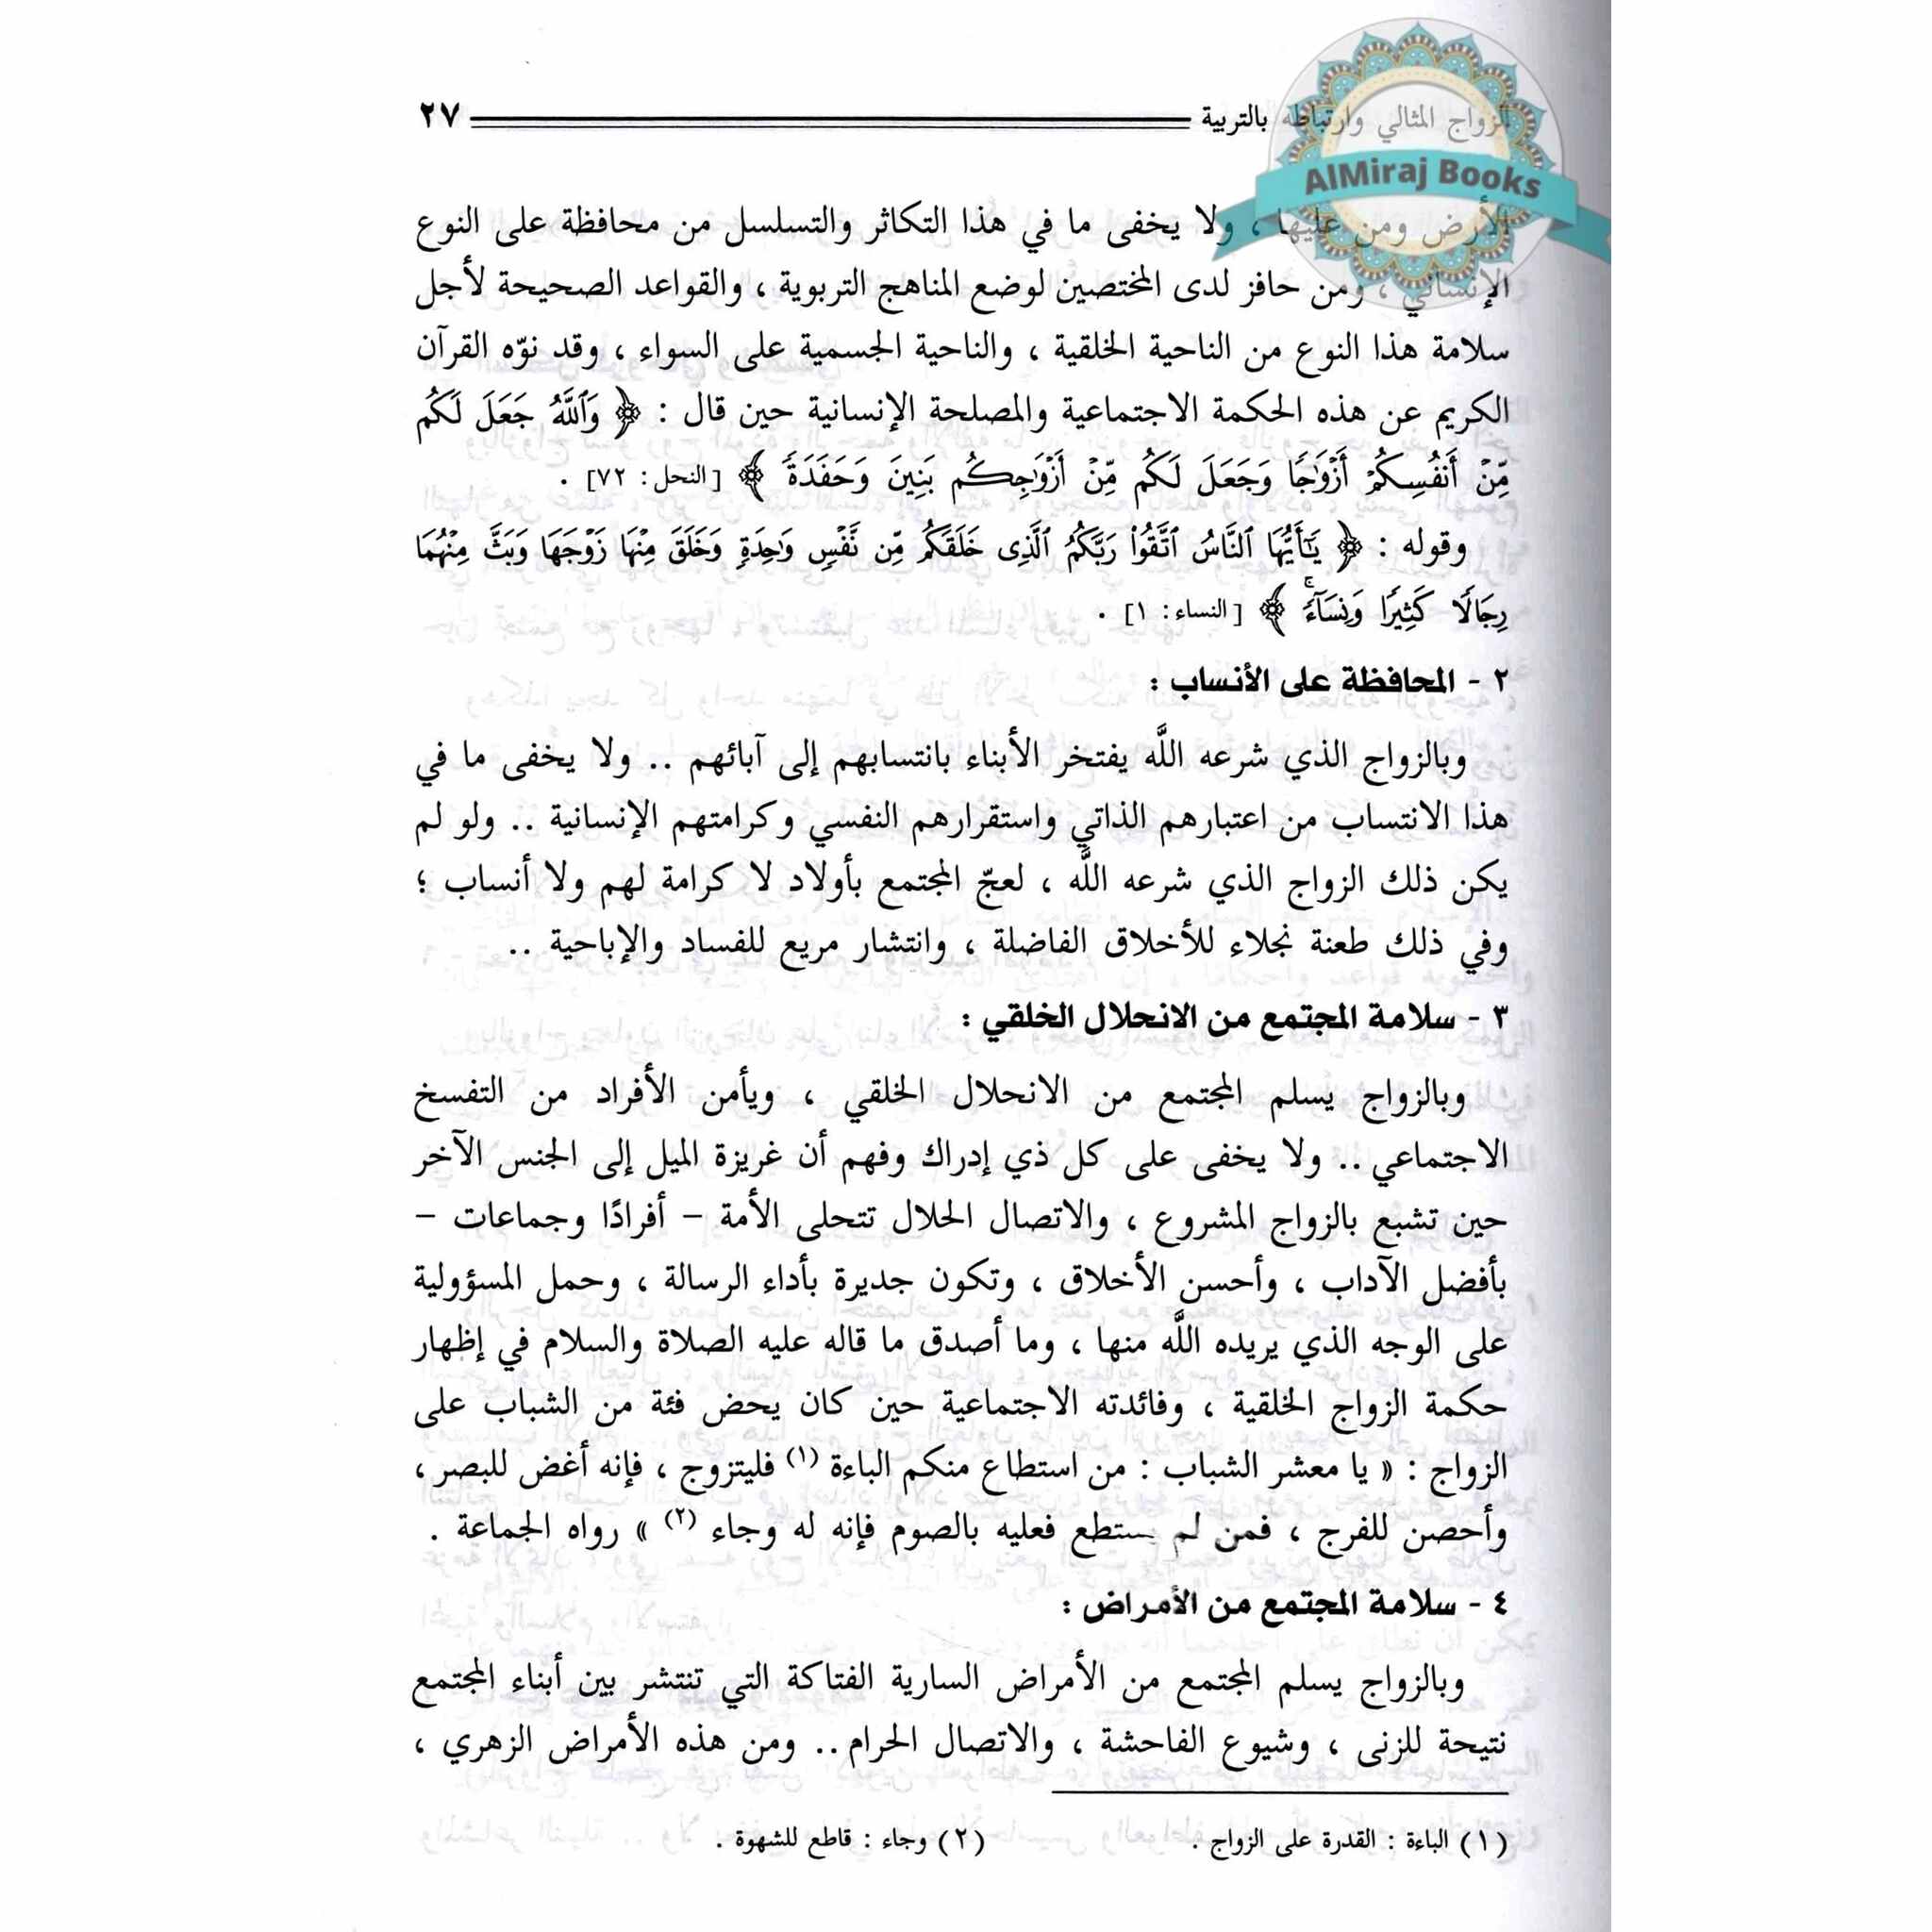 الزواج المثالي وارتباطه بالتربية ٢٧
AlMiraj Books
الأرض ومن عليها ، ولا يخفى ما في هذا التكاثر والتسلسل من محافظة على النوع
الإنساني ، ومن حافز لدى المختصين لوضع المناهج التربوية ، والقواعد الصحيحة لأجل
سلامة هذا النوع من الناحية الخلقية ، والناحية الجسمية على السواء ، وقد نوّه القرآن
الكريم عن هذه الحكمة الاجتماعية والمصلحة الإنسانية حين قال : ﴿ وَٱللَّهُ جَعَلَ لَكُم
مِّنْ أَنفُسِكُمْ أَزْوَٰجًا وَجَعَلَ لَكُم مِّنْ أَزْوَٰجِكُم بَنِينَ وَحَفَدَةً ﴾ [النحل: ٧٢] .
وقوله : ﴿ يَٰٓأَيُّهَا ٱلنَّاسُ ٱتَّقُوا۟ رَبَّكُمُ ٱلَّذِى خَلَقَكُم مِّن نَّفْسٍ وَٰحِدَةٍ وَخَلَقَ مِنْهَا زَوْجَهَا وَبَثَّ مِنْهُمَا
رِجَالًا كَثِيرًا وَنِسَآءً ۚ ﴾ [النساء: ١] .
٢ - المحافظة على الأنساب :
وبالزواج الذي شرعه اللَّه يفتخر الأبناء بانتسابهم إلى آبائهم .. ولا يخفى ما في
هذا الانتساب من اعتبارهم الذاتي واستقرارهم النفسي وكرامتهم الإنسانية .. ولو لم
يكن ذلك الزواج الذي شرعه اللَّه ، لعجّ المجتمع بأولاد لا كرامة لهم ولا أنساب ؛
وفي ذلك طعنة نجلاء للأخلاق الفاضلة ، وانتشار مريع للفساد والإباحية ..
٣ - سلامة المجتمع من الانحلال الخلقي :
وبالزواج يسلم المجتمع من الانحلال الخلقي ، ويأمن الأفراد من التفسخ
الاجتماعي .. ولا يخفى على كل ذي إدراك وفهم أن غريزة الميل إلى الجنس الآخر
حين تشبع بالزواج المشروع ، والاتصال الحلال تتحلى الأمة – أفرادًا وجماعات –
بأفضل الآداب ، وأحسن الأخلاق ، وتكون جديرة بأداء الرسالة ، وحمل المسؤولية
على الوجه الذي يريده اللَّه منها ، وما أصدق ما قاله عليه الصلاة والسلام في إظهار
حكمة الزواج الخلقية ، وفائدته الاجتماعية حين كان يحض فئة من الشباب على
الزواج : « يا معشر الشباب : من استطاع منكم الباءة (١) فليتزوج ، فإنه أغض للبصر ،
وأحصن للفرج ، فمن لم يستطع فعليه بالصوم فإنه له وجاء (٢) » رواه الجماعة .
٤ - سلامة المجتمع من الأمراض :
وبالزواج يسلم المجتمع من الأمراض السارية الفتاكة التي تنتشر بين أبناء المجتمع
نتيجة للزنى ، وشيوع الفاحشة ، والاتصال الحرام .. ومن هذه الأمراض الزهري ،
(١) الباءة : القدرة على الزواج . (٢) وجاء : قاطع للشهوة .